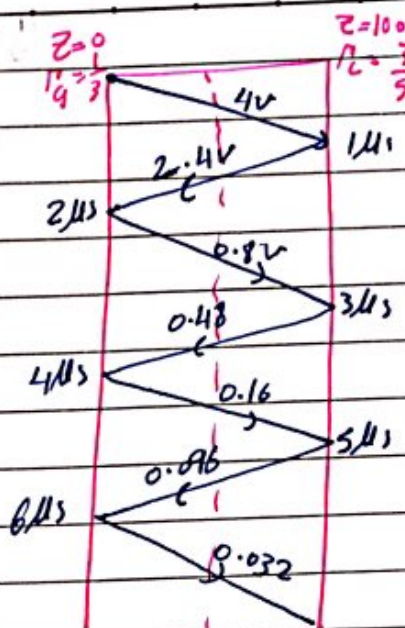 z=0
z=100
Γg = 1/3
4v
1μs
2.4v
2μs
0.8v
3μs
0.48
4μs
0.16
5μs
0.096
6μs
0.032